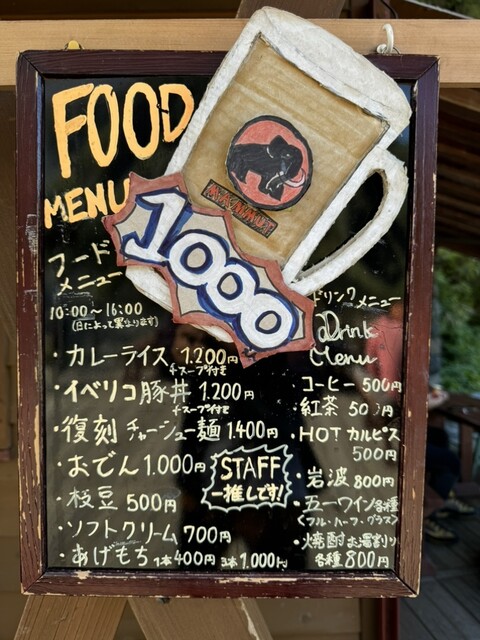 FOOD
MENU
MAMMUT
1000
フード
メニュー
10:00～16:00
(日によって異なります)
・カレーライス 1.200円
+スープ付き
・イベリコ豚丼 1.200円
+スープ付き
・復刻 チャーシュー麺 1.400円
・おでん 1.000円
・枝豆 500円
・ソフトクリーム 700円
・あげもち 1本400円 3本1.000円
STAFF
一推しです!
ドリンクメニュー
Drink
Menu
・コーヒー 500円
・紅茶 500円
・HOTカルピス
500円
・岩波 800円
・五一ワイン各種
<フル・ハーフ・グラス>
・焼酎お湯割り
各種 800円